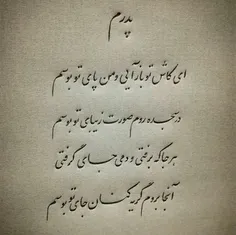 پدرم
ای کاش تو باز آیی و من پای تو بوسم
در سجده روم صورت زیبای تو بوسم
هر جا که برفتی و دمی جای گرفتی
آنجا بروم گریه کنان جای تو بوسم